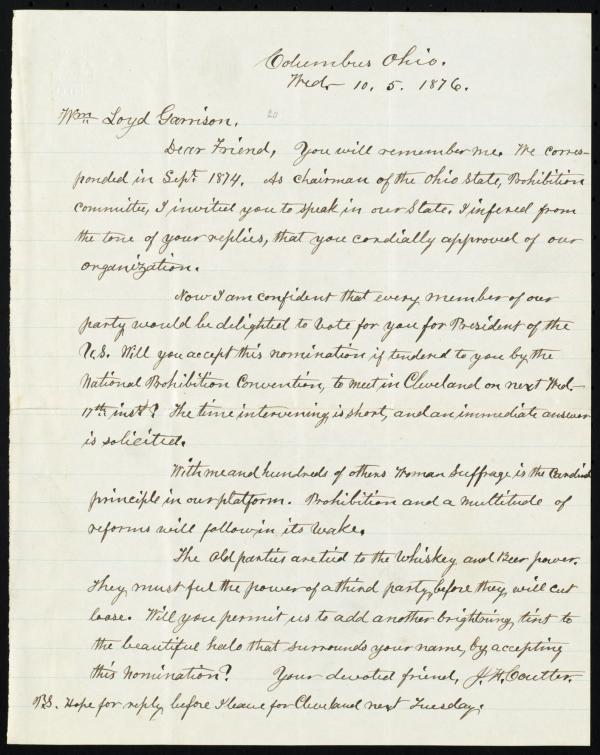 Columbus Ohio.
Wed. 10. 5. 1876.
Wm. Loyd Garrison.
20
Dear Friend, You will remember me. We corres-
ponded in Sept. 1874. As chairman of the Ohio State, Prohibition
committee, I invited you to speak in our State. I infered from
the tone of your replies, that you cordially approved of our
organization.
Now I am confident that every member of our
party, would be delighted to vote for you for President of the
U.S. Will you accept this nomination if tendered to you by the
National Prohibition Convention, to meet in Cleveland on next Wed.
17th inst? The time intervening, is short, and an immediate answer
is solicited.
With me and hundreds of others Woman Suffrage is the Cardinal
principle in our platform. Prohibition and a multitude of
reforms will follow in its wake.
The old parties are tied to the Whiskey and Beer power.
They must ful the power of a third party, before they, will cut
loose. Will you permit us to add another brightning, tint to
the beautiful halo that surrounds your name, by accepting
this nomination? Your devoted friend, J. H. Coulter.
P.S. Hope for reply before I leave for Cleveland next Tuesday.